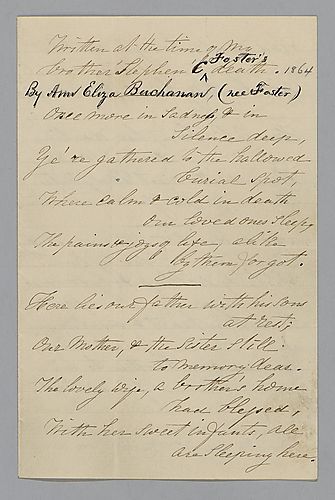 Written at the time of My
brother Stephen C. Foster's death. 1864
By Ann Eliza Buchanan, (nee Foster)
Once more in Sadness & in
Silence deep,
Ye're gathered to the hallowed
burial spot,
Where calm & cold in death
our loved ones sleep,
The pains & joys of life, alike
by them forgot.
Here lies our father with his sons
at rest;
Our Mother, & the Sister still
to memory dear.
The lovely wife, a brother's home
had blessed,
With her sweet infants, all
are sleeping here.